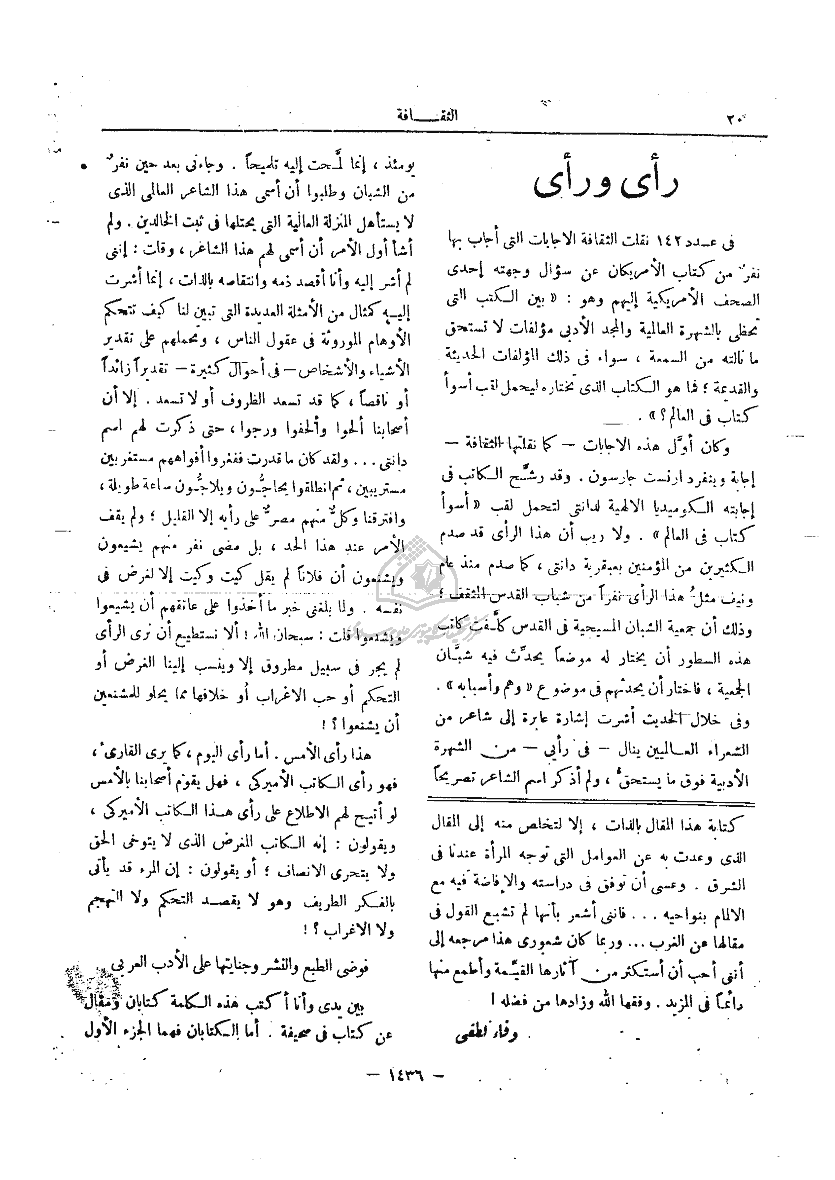 ٢٠
الثقــافة
رأى ورأى
فى عـدد ١٤٢ نقلت الثقافة الاجابات التى أجاب بها
نفرٌ من كتاب الأمريكان عن سؤال وجهته إحدى
الصحف الأمريكية إليهم وهو : « بين الكتب التى
تحظى بالشهرة العالية والمجد الأدبى مؤلفات لا تستحق
ما نالته من السمعة ، سواء فى ذلك المؤلفات الحديثة
والقديمة ؛ فما هو الكتاب الذى تختاره ليحمل لقب أسوأ
كتاب فى العالم ؟ » .
وكان أوّل هذه الاجابات — كما نقلتها الثقافة —
إجابة وينفرد ارنست جارسون . وقد رشّح الكاتب فى
إجابته الكوميديا الالهية لدانتى لتحمل لقب « أسوأ
كتاب فى العالم » . ولا ريب أن هذا الرأى قد صدم
الكثيرين من المؤمنين بعبقرية دانتى ، كما صدم منذ عام
ونيف مثلُ هذا الرأى نفراً من شباب القدس المثقف ؛
وذلك أن جمعية الشبان المسيحية فى القدس كلّفت كاتب
هذه السطور أن يختار له موضعاً يحدّث فيه شبّان
الجمعية ، فاختار أن يحدثهم فى موضوع « وهم وأسبابه » .
وفى خلال الحديث أشرت إشارة عابرة إلى شاعر من
الشعراء العالميين ينال — فى رأيى — من الشهرة
الأدبية فوق ما يستحقُّ ، ولم أذكر اسم الشاعر تصريحاً
يومئذ ، إنما لمّحت إليه تلميحاً . وجاءنى بعد حين نفرٌ
من الشبان وطلبوا أن أسمى هذا الشاعر العالى الذى
لا يستأهل المنزلة العالية التى يحتلها فى ثبت الخالدين . ولم
أشأ أول الأمر أن أسمى لهم هذا الشاعر ، وقلت : إننى
لم أشر إليه وأنا أقصد ذمه وانتقاصه بالذات ، إنما أشرت
إليه كمثال من الأمثلة العديدة التى تبين لنا كيف تتحكم
الأوهام الموروثة فى عقول الناس ، وتحملهم على تقدير
الأشياء والأشخاص — فى أحوال كثيرة — تقديراً زائداً
أو ناقصاً ، كما قد تسعد الظروف أو لا تسعد . إلا أن
أصحابنا ألحوا وألحفوا ورجوا ، حتى ذكرت لهم اسم
دانتى ... ولقد كان ما قدرت ففغروا أفواههم مستغربين
مستريبين ، ثم انطلقوا يحاجّون ويلاجّون ساعة طويلة ،
وافترقنا وكلٌّ منهم مصرٌّ على رأيه إلا القليل ؛ ولم يقف
الأمر عند هذا الحد ، بل مضى نفر منهم يشيعون
ويشنعون أن فلاناً لم يقل كيت وكيت إلا لغرض فى
نفسه . ولما بلغنى خبر ما أخذوا على عاتقهم أن يشيعوا
ويشنعوا قلت : سبحان الله ! ألا نستطيع أن نرى الرأى
لم يجر فى سبيل مطروق إلا وينسب إلينا الغرض أو
التحكم أو حب الاغراب أو خلافها مما يحلو للمشنعين
أن يشنعوا ؟ !
هذا رأى الأمس . أما رأى اليوم ، كما يرى القارىء ،
فهو رأى الكاتب الأميركى ، فهل يقوّم أصحابنا بالأمس
لو أتيح لهم الاطلاع على رأى هذا الكاتب الأميركى ،
ويقولون : إنه الكاتب المغرض الذى لا يتوخى الحق
ولا يتحرى الانصاف ؛ أو يقولون : إن المرء قد يأتى
بالفكر الطريف وهو لا يقصد التحكم ولا التهجم
ولا الاغراب ؟ !
فوضى الطبع والنشر وجنايتها على الأدب العربى
بين يدى وأنا أكتب هذه الكلمة كتابان ومقال
عن كتاب فى صحيفة . أما الكتابان فهما الجزء الأول
كتابة هذا المقال بالذات ، إلا لتخلص منه إلى المقال
الذى وعدت به عن العوامل التى توجه المرأة عندنا فى
الشرق . وعسى أن توفق فى دراسته والإفاضة فيه مع
الالمام بنواحيه ... فاننى أشعر بأنها لم تشبع القول فى
مقالها عن الغرب ... وربما كان شعورى هذا مرجعه إلى
أننى أحب أن أستكثر من آثارها القيّمة وأطمع منها
دائماً فى المزيد . وفقها الله وزادها من فضله !
وفاء لطفى
— ١٤٣٦ —